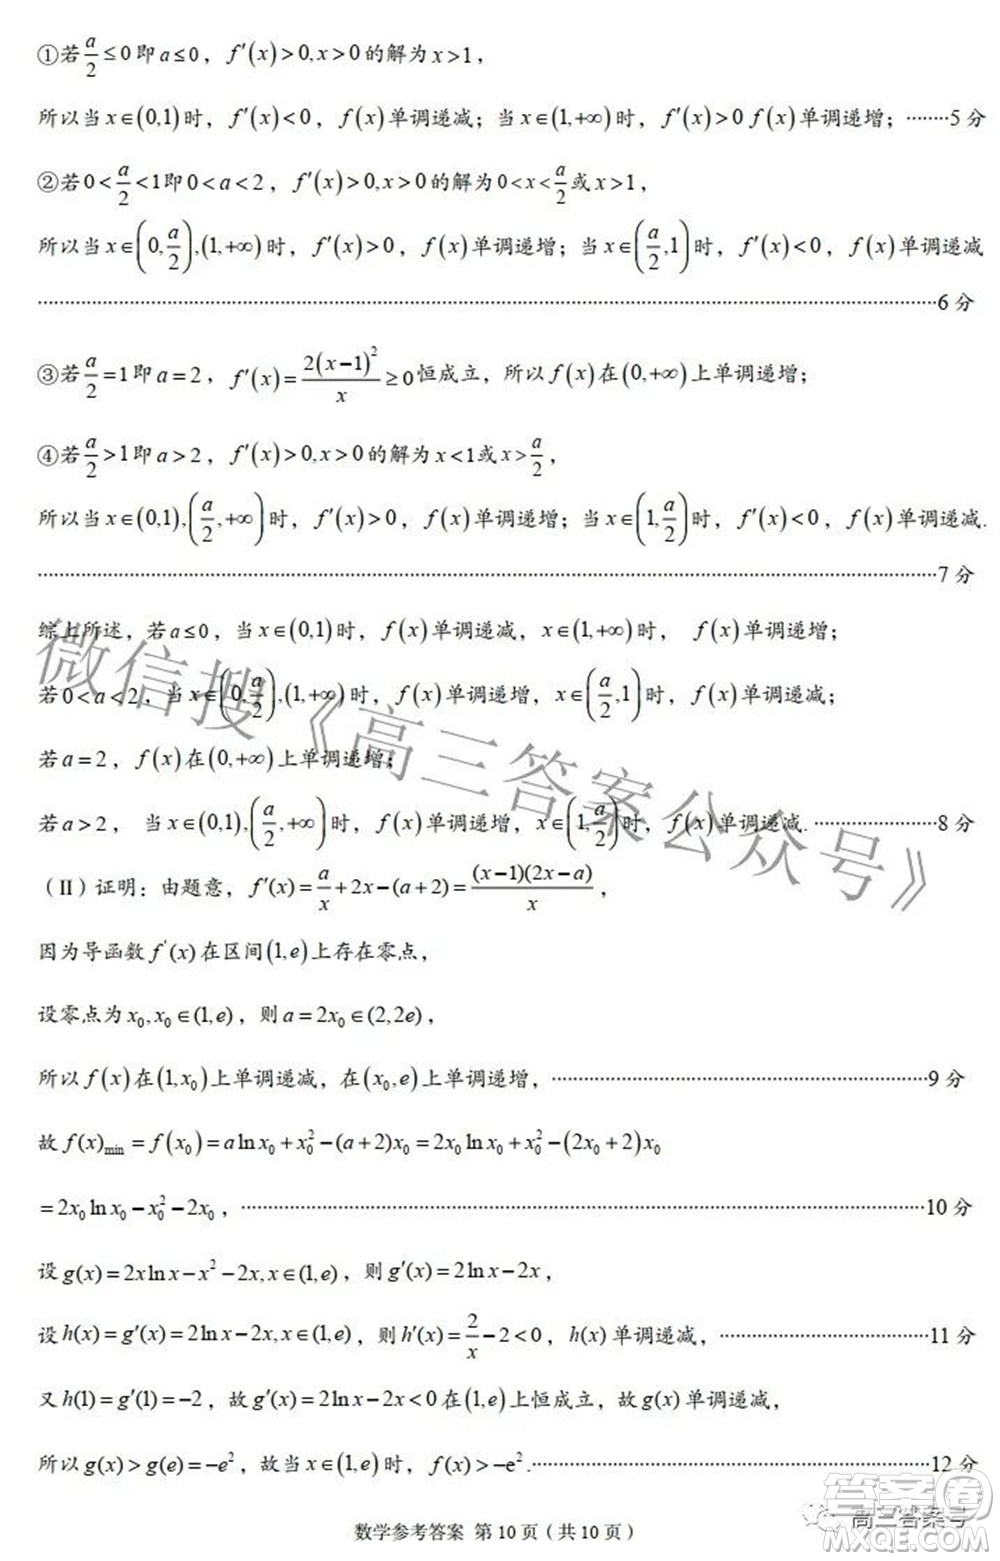 ①若 a/2 ≤0 即 a≤0，f′(x)>0, x>0 的解为 x>1，
所以当 x∈(0,1) 时，f′(x)<0，f(x) 单调递减；当 x∈(1,+∞) 时，f′(x)>0 f(x) 单调递增；········5 分
②若 0< a/2 <1 即 0<a<2，f′(x)>0, x>0 的解为 0<x< a/2 或 x>1，
所以当 x∈(0, a/2),(1,+∞) 时，f′(x)>0，f(x) 单调递增；当 x∈(a/2,1) 时，f′(x)<0，f(x) 单调递减
········6 分
③若 a/2 =1 即 a=2，f′(x)= 2(x−1)²/x ≥0 恒成立，所以 f(x) 在 (0,+∞) 上单调递增；
④若 a/2 >1 即 a>2，f′(x)>0, x>0 的解为 x<1 或 x> a/2，
所以当 x∈(0,1),(a/2,+∞) 时，f′(x)>0，f(x) 单调递增；当 x∈(1, a/2) 时，f′(x)<0，f(x) 单调递减.
········7 分
综上所述，若 a≤0，当 x∈(0,1) 时，f(x) 单调递减，x∈(1,+∞) 时， f(x) 单调递增；
若 0<a<2，当 x∈(0, a/2),(1,+∞) 时，f(x) 单调递增，x∈(a/2,1) 时，f(x) 单调递减；
若 a=2，f(x) 在 (0,+∞) 上单调递增；
若 a>2， 当 x∈(0,1),(a/2,+∞) 时，f(x) 单调递增，x∈(1, a/2) 时，f(x) 单调递减. ········8 分
（II）证明：由题意，f′(x)= a/x +2x−(a+2)= (x−1)(2x−a)/x，
因为导函数 f′(x) 在区间 (1,e) 上存在零点，
设零点为 x₀, x₀∈(1,e)，则 a=2x₀∈(2,2e)，
所以 f(x) 在 (1,x₀) 上单调递减，在 (x₀,e) 上单调递增，········9 分
故 f(x)min = f(x₀)=a ln x₀ + x₀² −(a+2)x₀ = 2x₀ ln x₀ + x₀² −(2x₀+2)x₀
=2x₀ ln x₀ − x₀² −2x₀，········10 分
设 g(x)=2x ln x − x² −2x, x∈(1,e)，则 g′(x)=2ln x−2x，
设 h(x)=g′(x)=2ln x−2x, x∈(1,e)，则 h′(x)= 2/x −2<0，h(x) 单调递减，········11 分
又 h(1)=g′(1)=−2，故 g′(x)=2ln x−2x<0 在 (1,e) 上恒成立，故 g(x) 单调递减，
所以 g(x)>g(e)=−e²，故当 x∈(1,e) 时，f(x)>−e².········12 分
数学参考答案 第 10 页（共 10 页）
微信搜《高三答案公众号》
高三答案号
答案圈
MXQE.COM